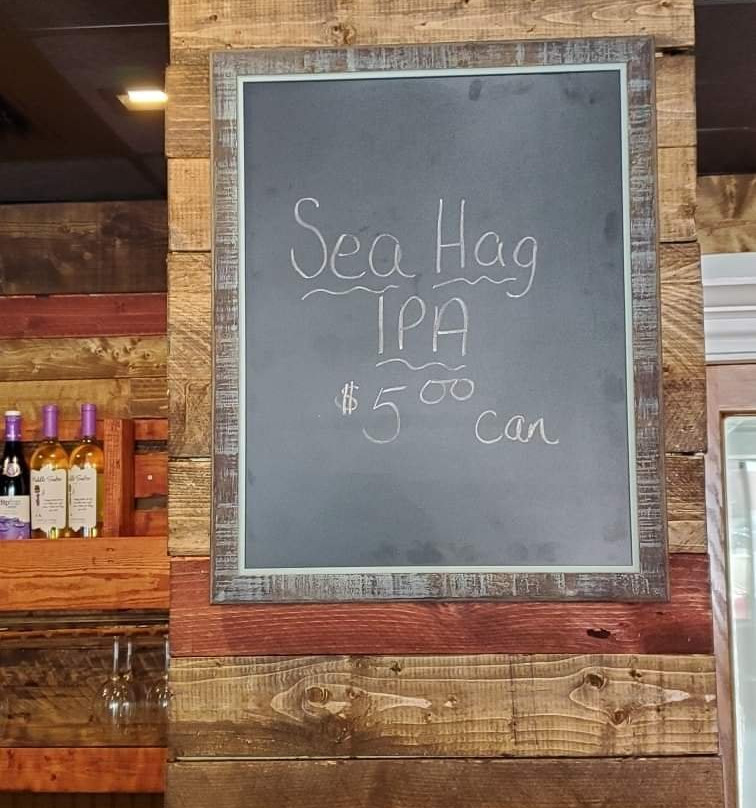 Sea Hag
IPA
$5.00 can